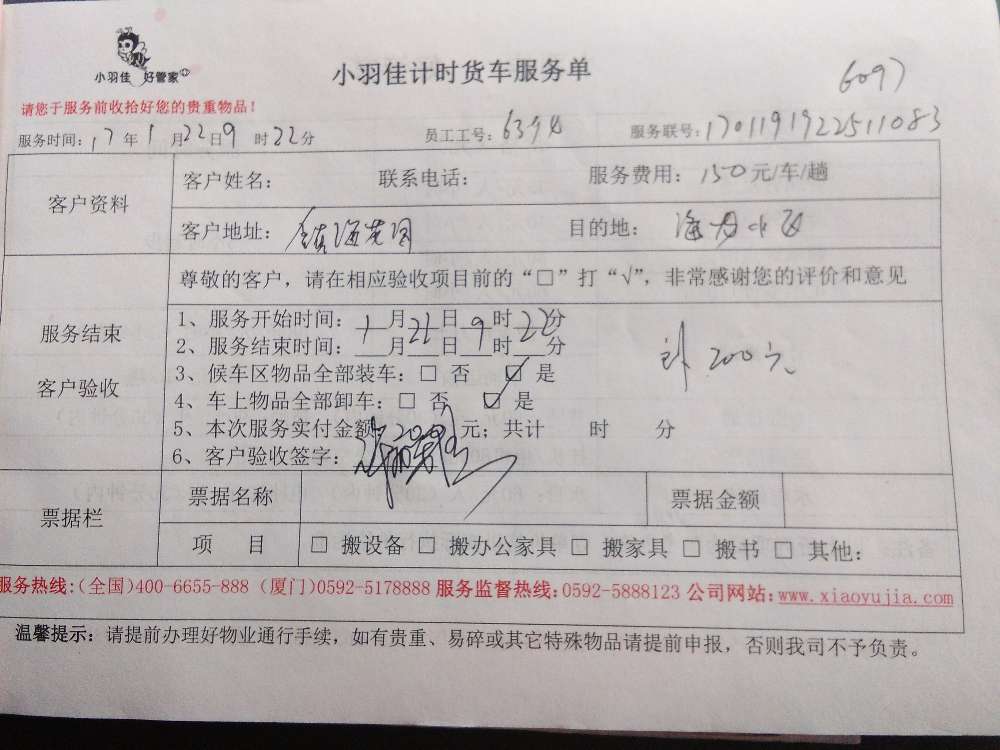 小羽佳 好管家
小羽佳计时货车服务单
6097
请您于服务前收拾好您的贵重物品！
服务时间：17年1月22日9时22分 员工工号：6394 服务联号：1701191922511083
客户资料
客户姓名： 联系电话： 服务费用：150元/车/趟
客户地址： 目的地：
尊敬的客户，请在相应验收项目前的“□”打“√”，非常感谢您的评价和意见
服务结束
客户验收
1、服务开始时间：1月21日9时22分
2、服务结束时间：___月___日___时___分
3、候车区物品全部装车：□ 否 ☑ 是
4、车上物品全部卸车：□ 否 ☑ 是
5、本次服务实付金额 200 元；共计 时 分
6、客户验收签字：
计 200元
票据栏
票据名称 票据金额
项 目 □ 搬设备 □ 搬办公家具 □ 搬家具 □ 搬书 □ 其他：
服务热线：(全国)400-6655-888 (厦门)0592-5178888 服务监督热线：0592-5888123 公司网站：www.xiaoyujia.com
温馨提示：请提前办理好物业通行手续，如有贵重、易碎或其它特殊物品请提前申报，否则我司不予负责。